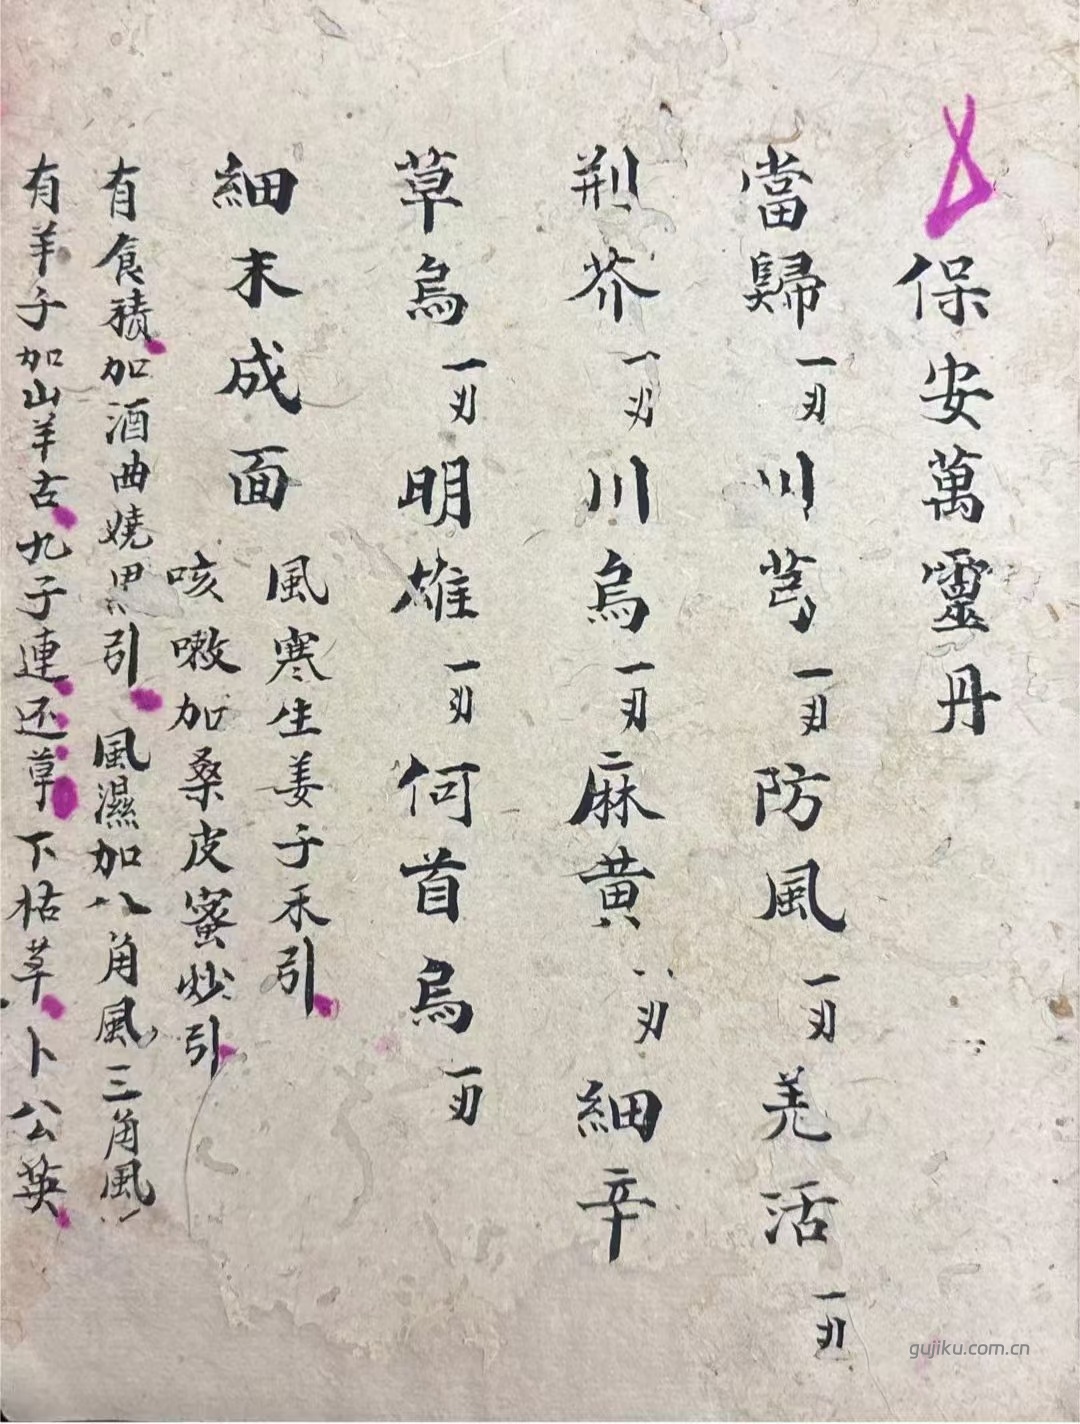 保安萬靈丹
當歸一刄川芎一刄防風一刄羌活一刄
荆芥一刄川烏一刄麻黄八刄細辛
草烏一刄明雄一刄何首烏一刄
細末成面
風寒生姜子禾引
咳嗽加桑皮蜜炒引
有食積加酒曲燒黑引風濕加八角風三角風
有羊子加山羊古九子連还草下枯草卜公英
gujiku.com.cn